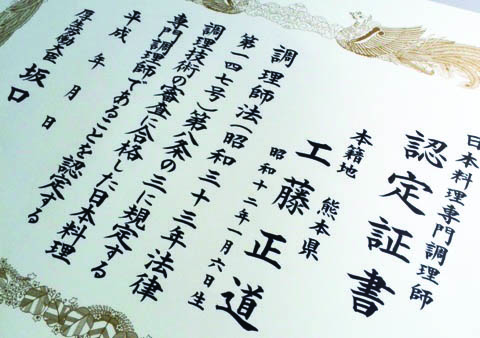 日本料理専門調理師
認定証書
本籍地 熊本県
工藤正道
昭和十二年一月六日生
調理師法(昭和三十三年法律
第一四七号)第八条の三に規定する
調理技術の審査に合格した日本料理
専門調理師であることを認定する
平成 年 月 日
厚生労働大臣 坂口